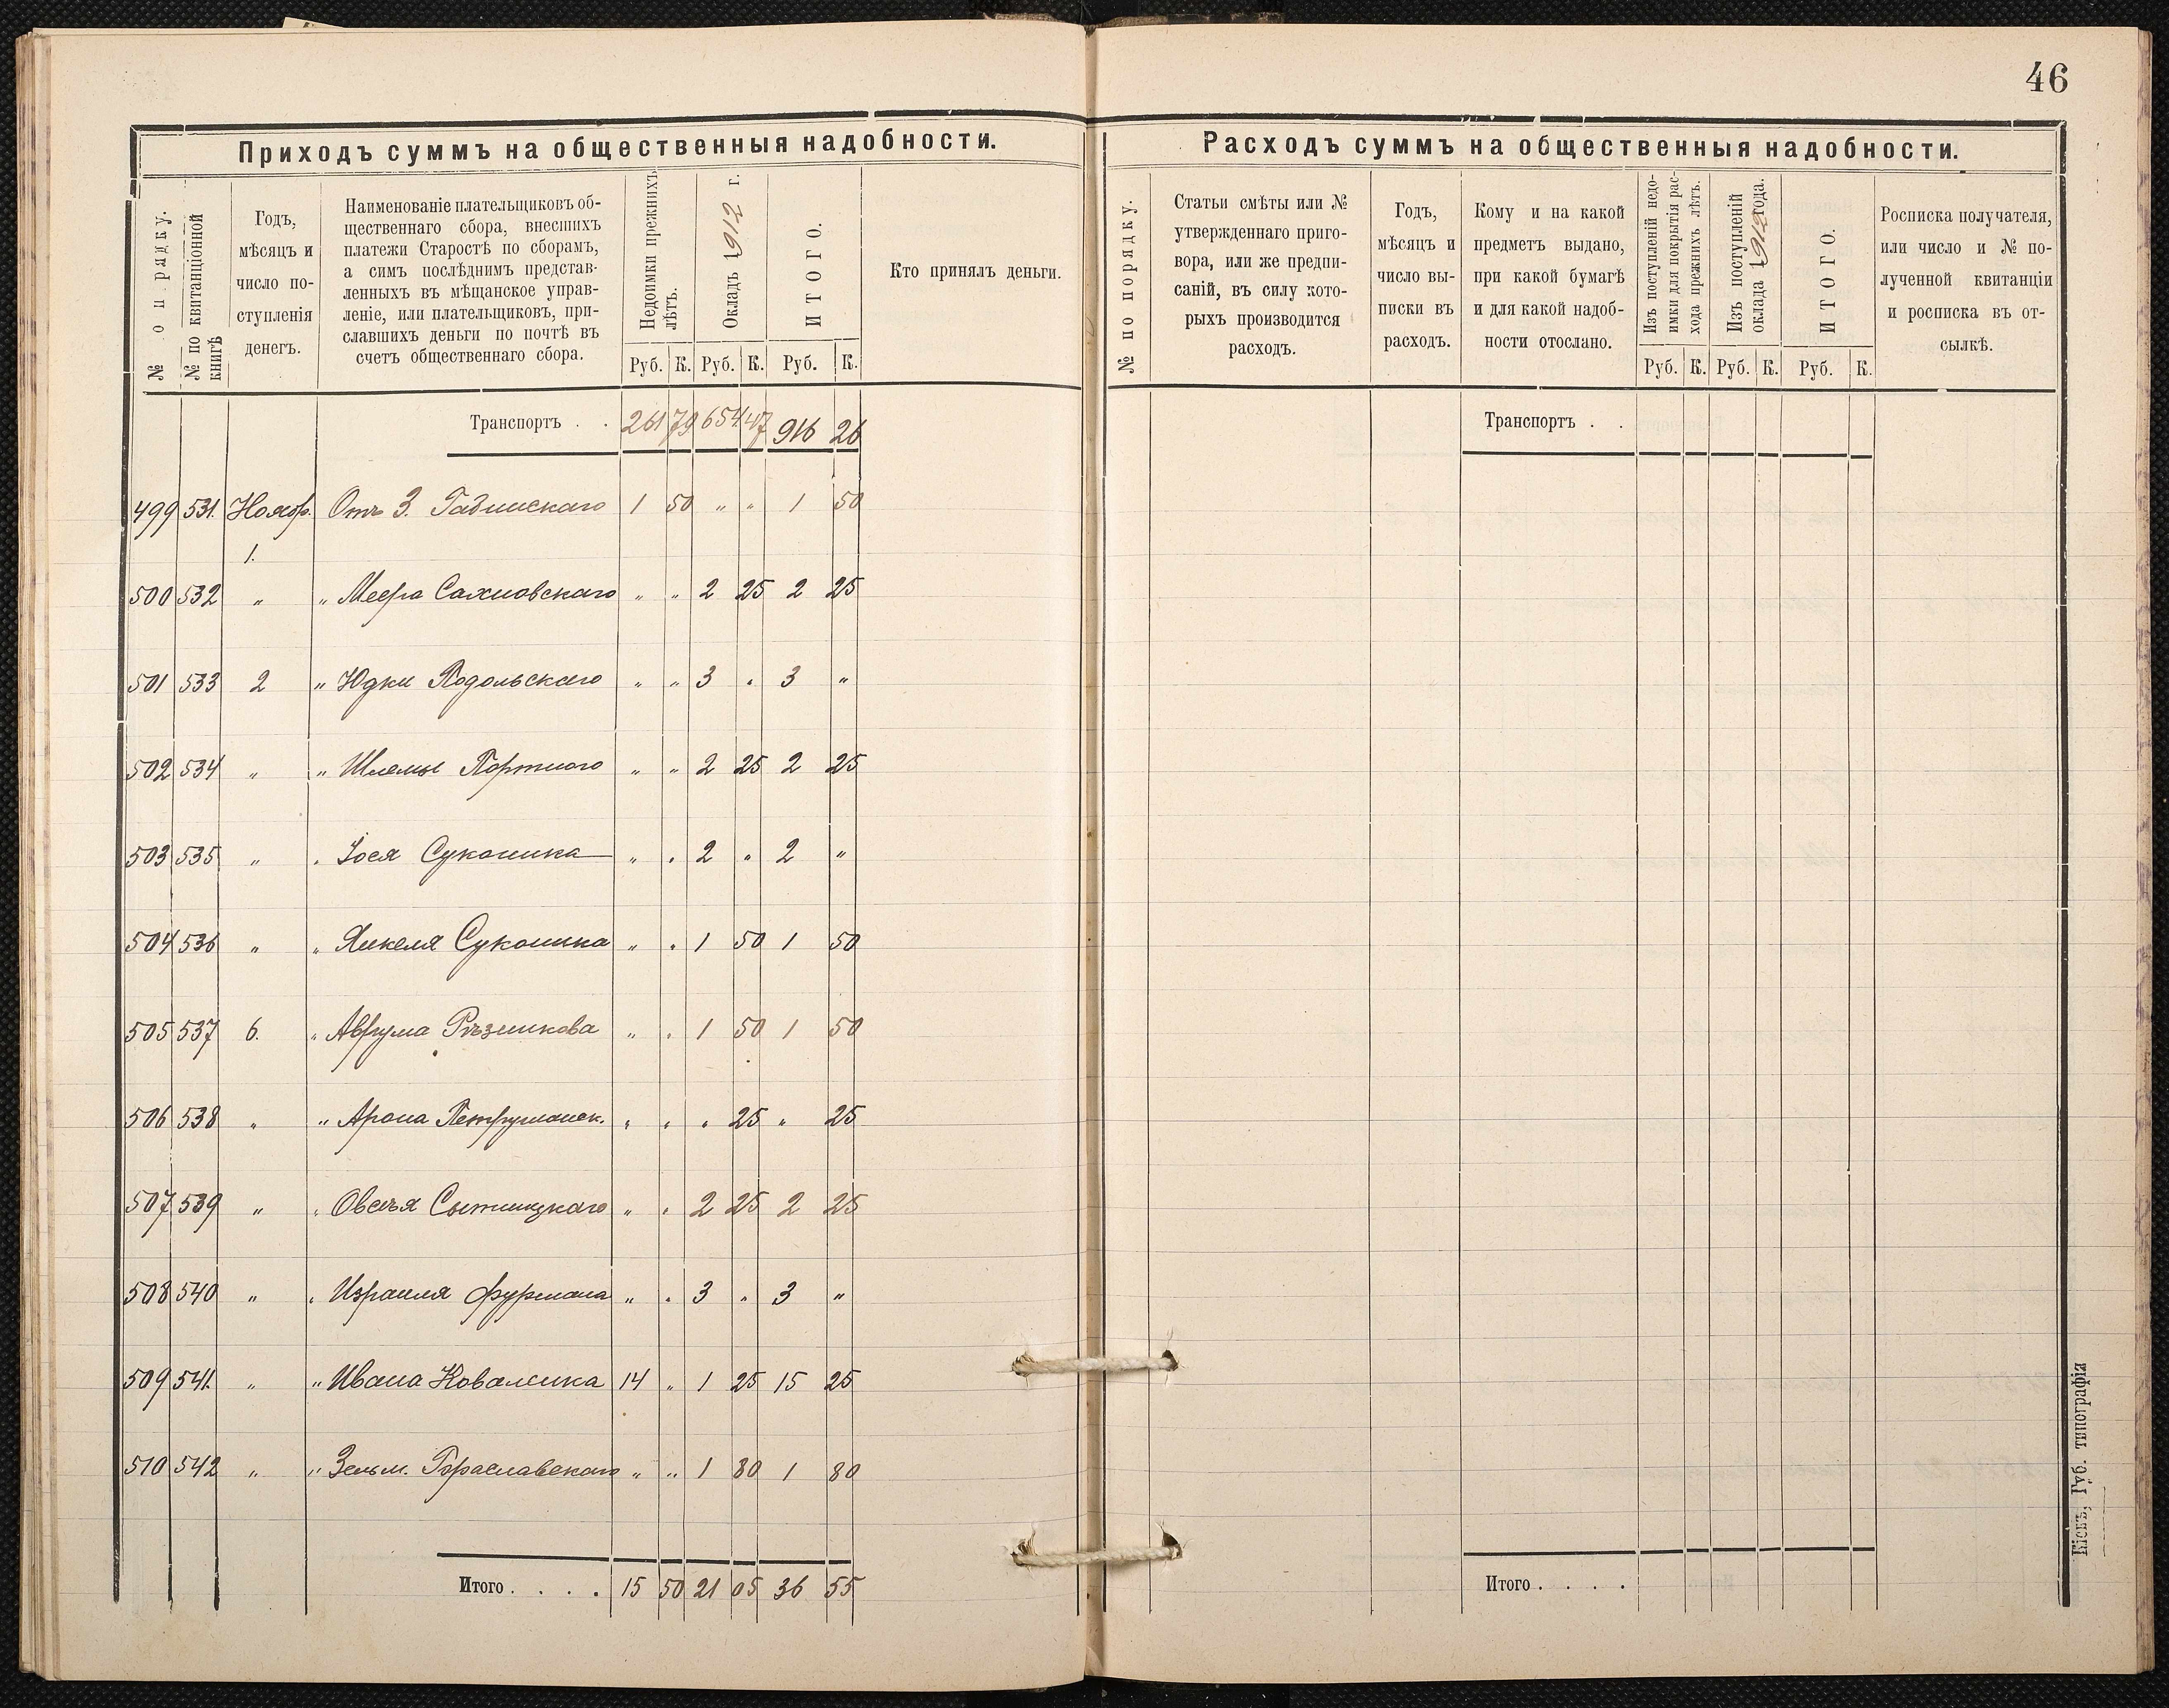 46
Приходъ суммъ на общественныя надобности.
№ по рядку.
№ по квитанціонной книгѣ
Годъ, мѣсяцъ и число поступленія денегъ.
Наименованіе плательщиковъ об-
щественнаго сбора, внесшихъ
платежи Старостѣ по сборамъ,
а симъ послѣднимъ представ-
ленныхъ въ мѣщанское управ-
леніе, или плательщиковъ, при-
славшихъ деньги по почтѣ въ
счетъ общественнаго сбора.
Недоимки прежнихъ лѣтъ.
Окладъ 1912 г.
ИТОГО.
Кто принялъ деньги.
Руб. К. Руб. К. Руб. К.
Транспортъ . . 261 79 654 47 916 26
499 531. Нояб. Отъ З. 1 50 " " 1 50
1.
500 532 " " Меера Сахновскаго " " 2 25 2 25
501 533 2 " Юдки Подольскаго " " 3 " 3 "
502 534 " " Шлемы Портного " " 2 25 2 25
503 535 " " Іося Суконика " " 2 " 2 "
504 536 " " Янкеля Суконика " " 1 50 1 50
505 537 6. " Аврума Рѣзникова " " 1 50 1 50
506 538 " " Арона Петрушанск. " " " 25 " 25
507 539 " " Овсѣя Сытницкаго " " 2 25 2 25
508 540 " " Израиля Фурмана " " 3 " 3 "
509 541. " " Ивана Ковалика 14 " 1 25 15 25
510 542 " " Зельм. " " 1 80 1 80
Итого . . . . 15 50 21 05 36 55
Расходъ суммъ на общественныя надобности.
№ по порядку.
Статьи смѣты или №
утвержденнаго приго-
вора, или же предпи-
саній, въ силу кото-
рыхъ производится
расходъ.
Годъ,
мѣсяцъ и
число вы-
писки въ
расходъ.
Кому и на какой
предметъ выдано,
при какой бумагѣ
и для какой надоб-
ности отослано.
Изъ поступленій недо-
имки для покрытія рас-
хода прежнихъ лѣтъ.
Изъ поступленій
оклада 1912 года.
ИТОГО.
Росписка получателя,
или число и № по-
лученной квитанціи
и росписка въ от-
сылкѣ.
Руб. К. Руб. К. Руб. К.
Транспортъ . .
Итого . . . .
Губ. типографія